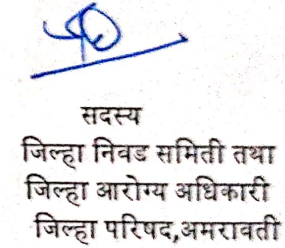 सदस्य
जिल्हा निवड समिती तथा
जिल्हा आरोग्य अधिकारी
जिल्हा परिषद,अमरावती